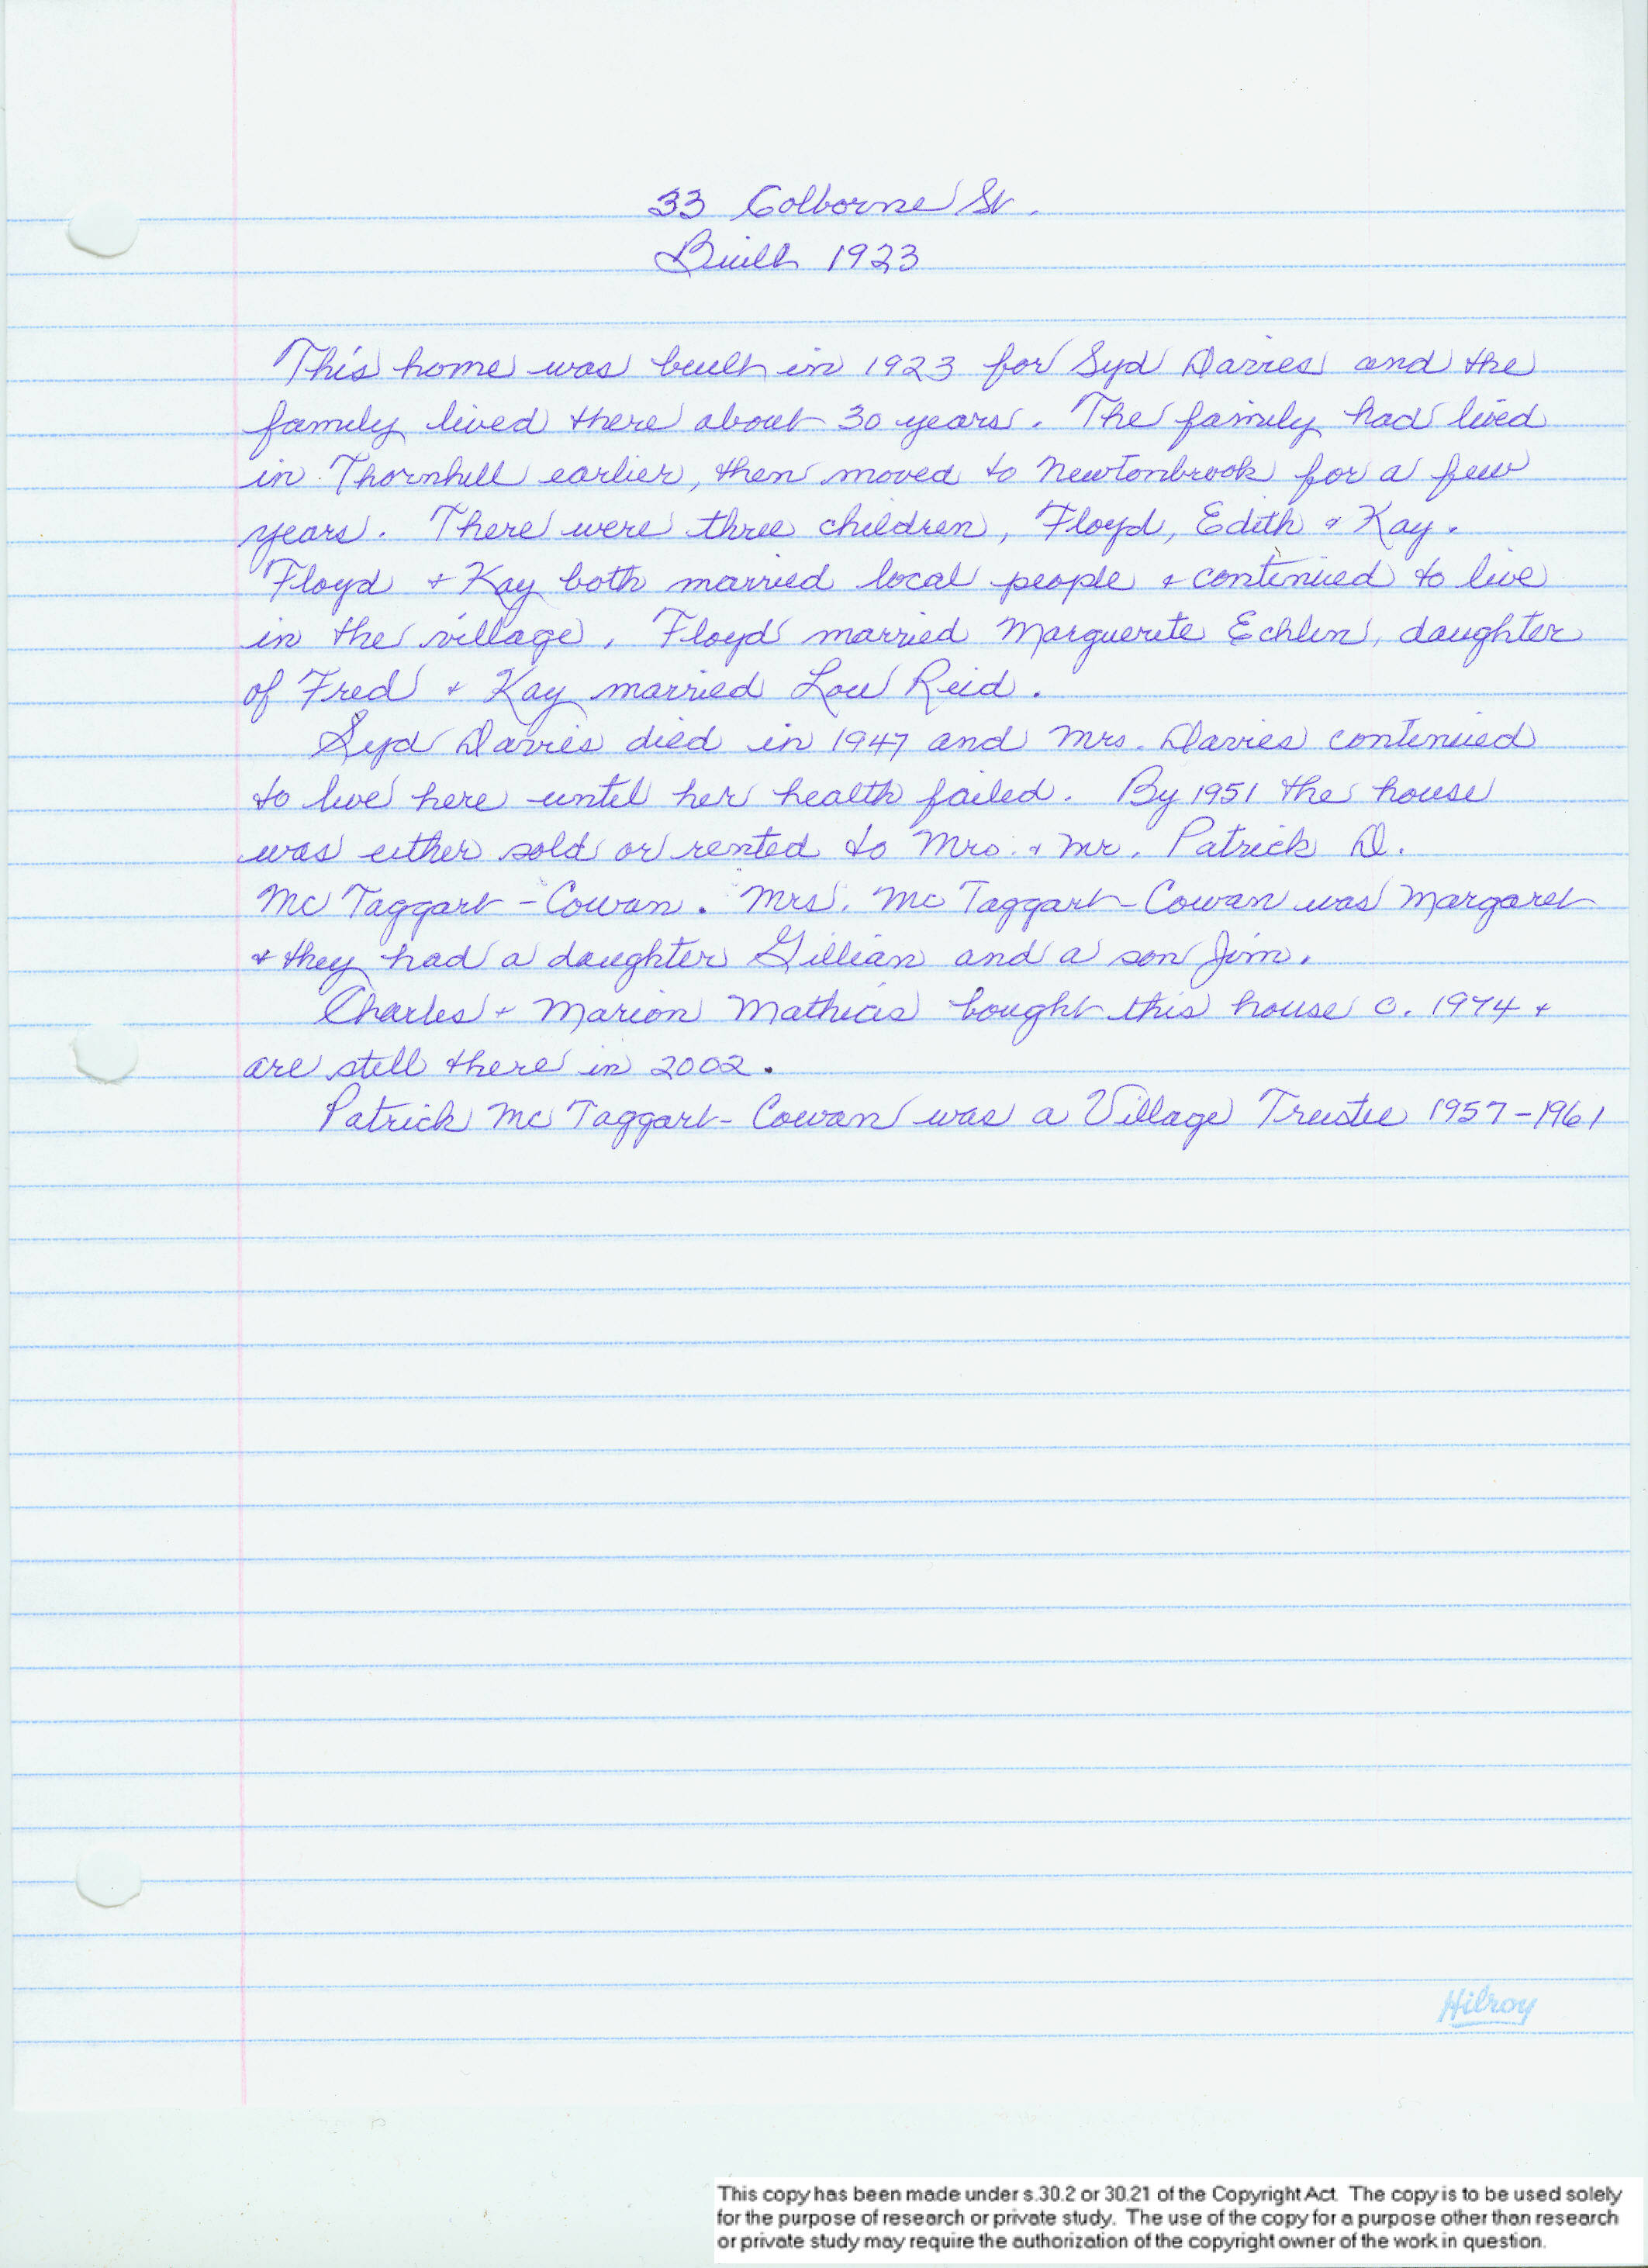 33 Colborne St.
Built 1923
This home was built in 1923 for Syd Davies and the
family lived there about 30 years. The family had lived
in Thornhill earlier, then moved to Newtonbrook for a few
years. There were three children, Floyd, Edith & Kay.
Floyd & Kay both married local people & continued to live
in the village. Floyd married Marguerite Echlin, daughter
of Fred & Kay married Lou Reid.
Syd Davies died in 1947 and Mrs. Davies continued
to live here until her health failed. By 1951 the house
was either sold or rented to Mrs. & Mr. Patrick D.
McTaggart-Cowan. Mrs. McTaggart-Cowan was Margaret
& they had a daughter Gillian and a son Jim.
Charles & Marion Mathias bought this house c. 1974 &
are still there in 2002.
Patrick McTaggart-Cowan was a Village Trustee 1957-1961
Hilroy
This copy has been made under s.30.2 or 30.21 of the Copyright Act. The copy is to be used solely
for the purpose of research or private study. The use of the copy for a purpose other than research
or private study may require the authorization of the copyright owner of the work in question.